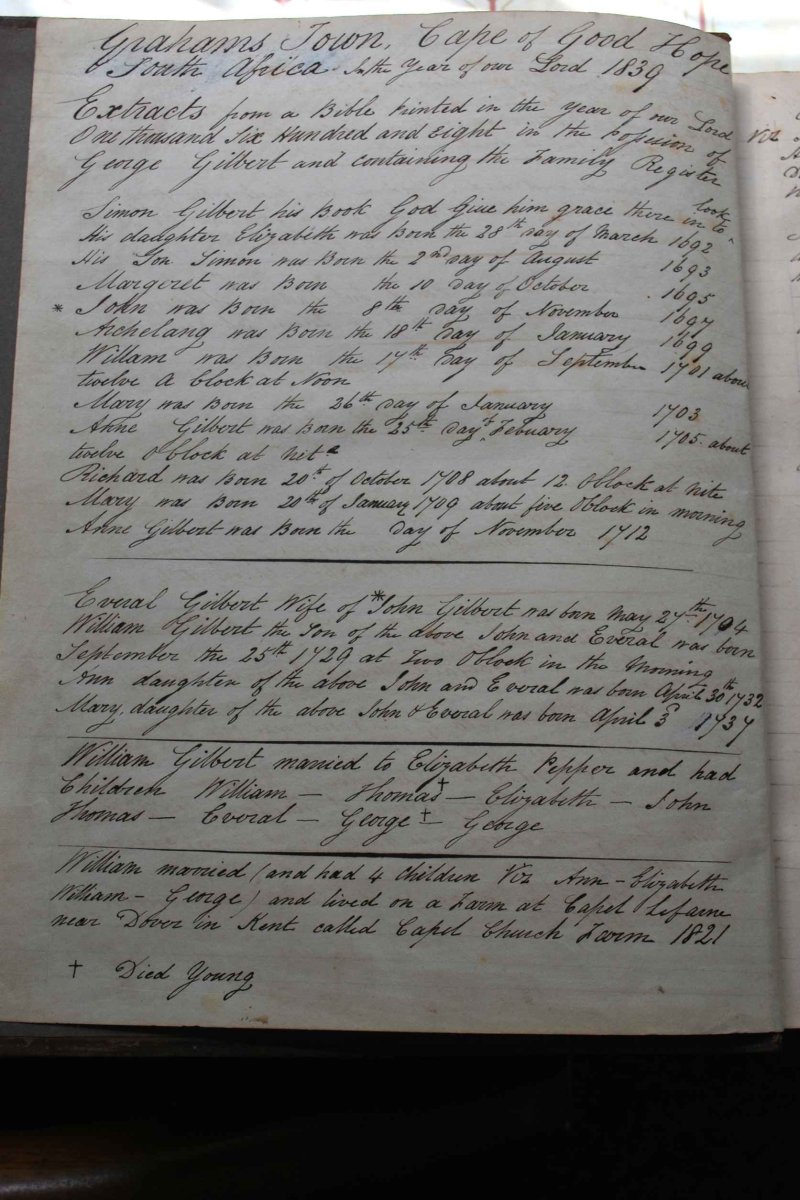 Grahams Town, Cape of Good Hope
South Africa. In the Year of our Lord 1839
Extracts from a Bible Printed in the year of our Lord
One thousand Six Hundred and Eight in the Possession of
George Gilbert and containing the Family Register
Simon Gilbert his Book God Give him grace there in to look
His daughter Elizabeth was Born the 28th day of March 1692
His Son Simon was Born the 2nd day of August 1693
Margeret was Born the 10 day of October 1695
* John was Born the 8th day of November 1697
Archelang was Born the 18th day of January 1699
Willam was Born the 17th day of September 1701 about
twelve A Clock at Noon
Mary was Born the 26th day of January 1703
Anne Gilbert was Born the 25th day Febuary 1705. about
twelve O Clock at nite
Richard was Born 20th of October 1708 about 12 O Clock at Nite
Mary was Born 20th of January 1709 about five O Clock in morning
Anne Gilbert was Born the day of November 1712
Everal Gilbert Wife of *John Gilbert was born May 27th 1704
William Gilbert the Son of the above John and Everal was born
September the 25th 1729 at Two O Clock in the Morning
Ann daughter of the above John and Everal was born April 30th 1732
Mary, daughter of the above John & Everal was born April 3d 1737
William Gilbert married to Elizabeth Pepper and had
Children William — Thomas † — Elizabeth — John
Thomas — Everal — George † — George
William married (and had 4 Children Viz Ann – Elizabeth
William – George) and lived on a Farm at Capel Lefarne
near Dover in Kent called Capel Church Farm 1821
† Died Young
Viz